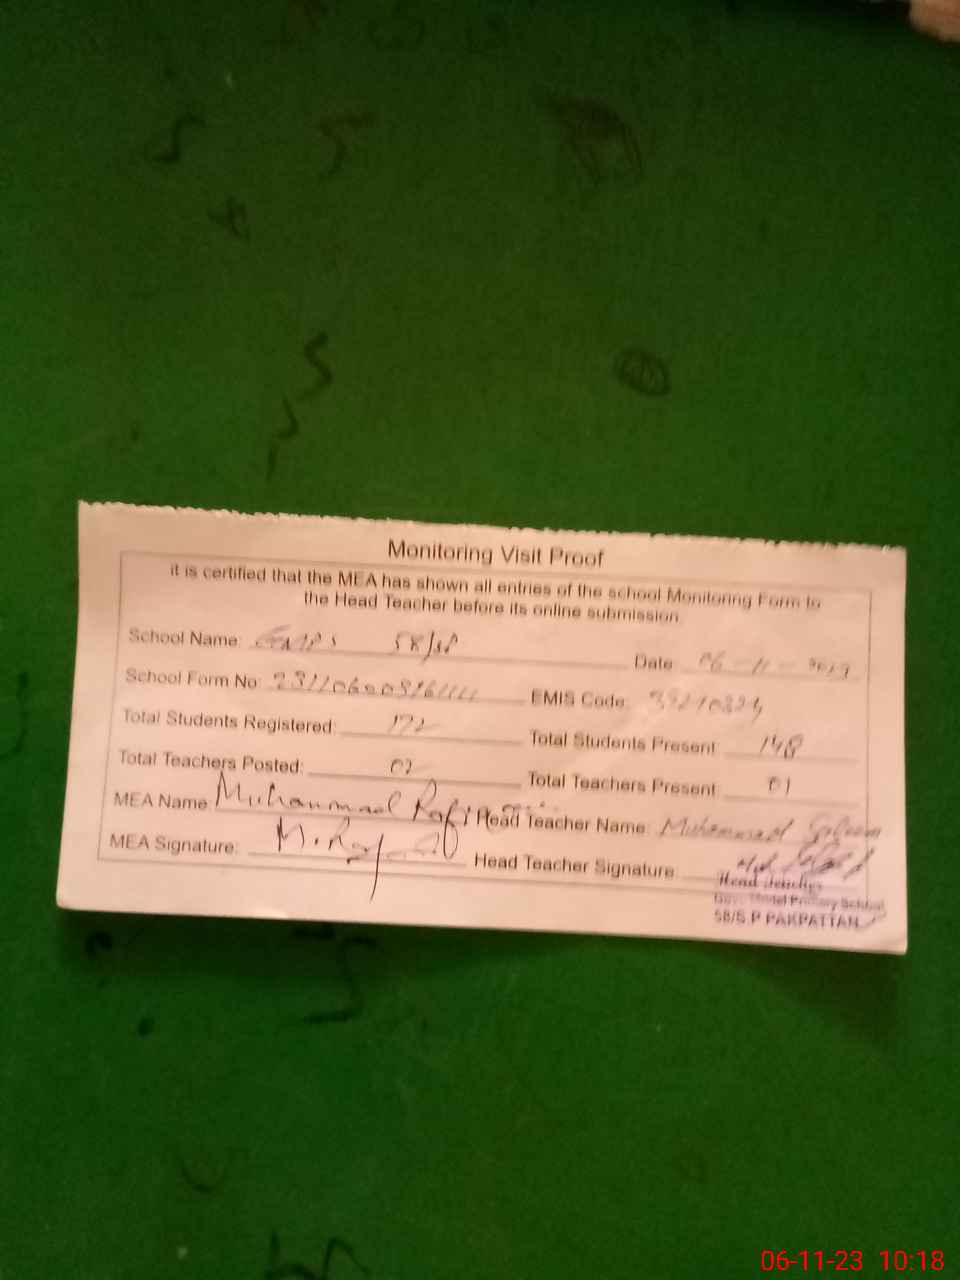 Monitoring Visit Proof
it is certified that the MEA has shown all entries of the school Monitoring Form to
the Head Teacher before its online submission.
School Name: GMPS 58/SP Date 06-11-2023
School Form No: EMIS Code:
Total Students Registered: 172 Total Students Present 148
Total Teachers Posted: 02 Total Teachers Present 01
MEA Name: Muhammad Rafi Head Teacher Name: Muhammad Saleem
MEA Signature: M. Head Teacher Signature
Head Teacher
Govt. Model Primary School
58/S.P PAKPATTAN
06-11-23 10:18